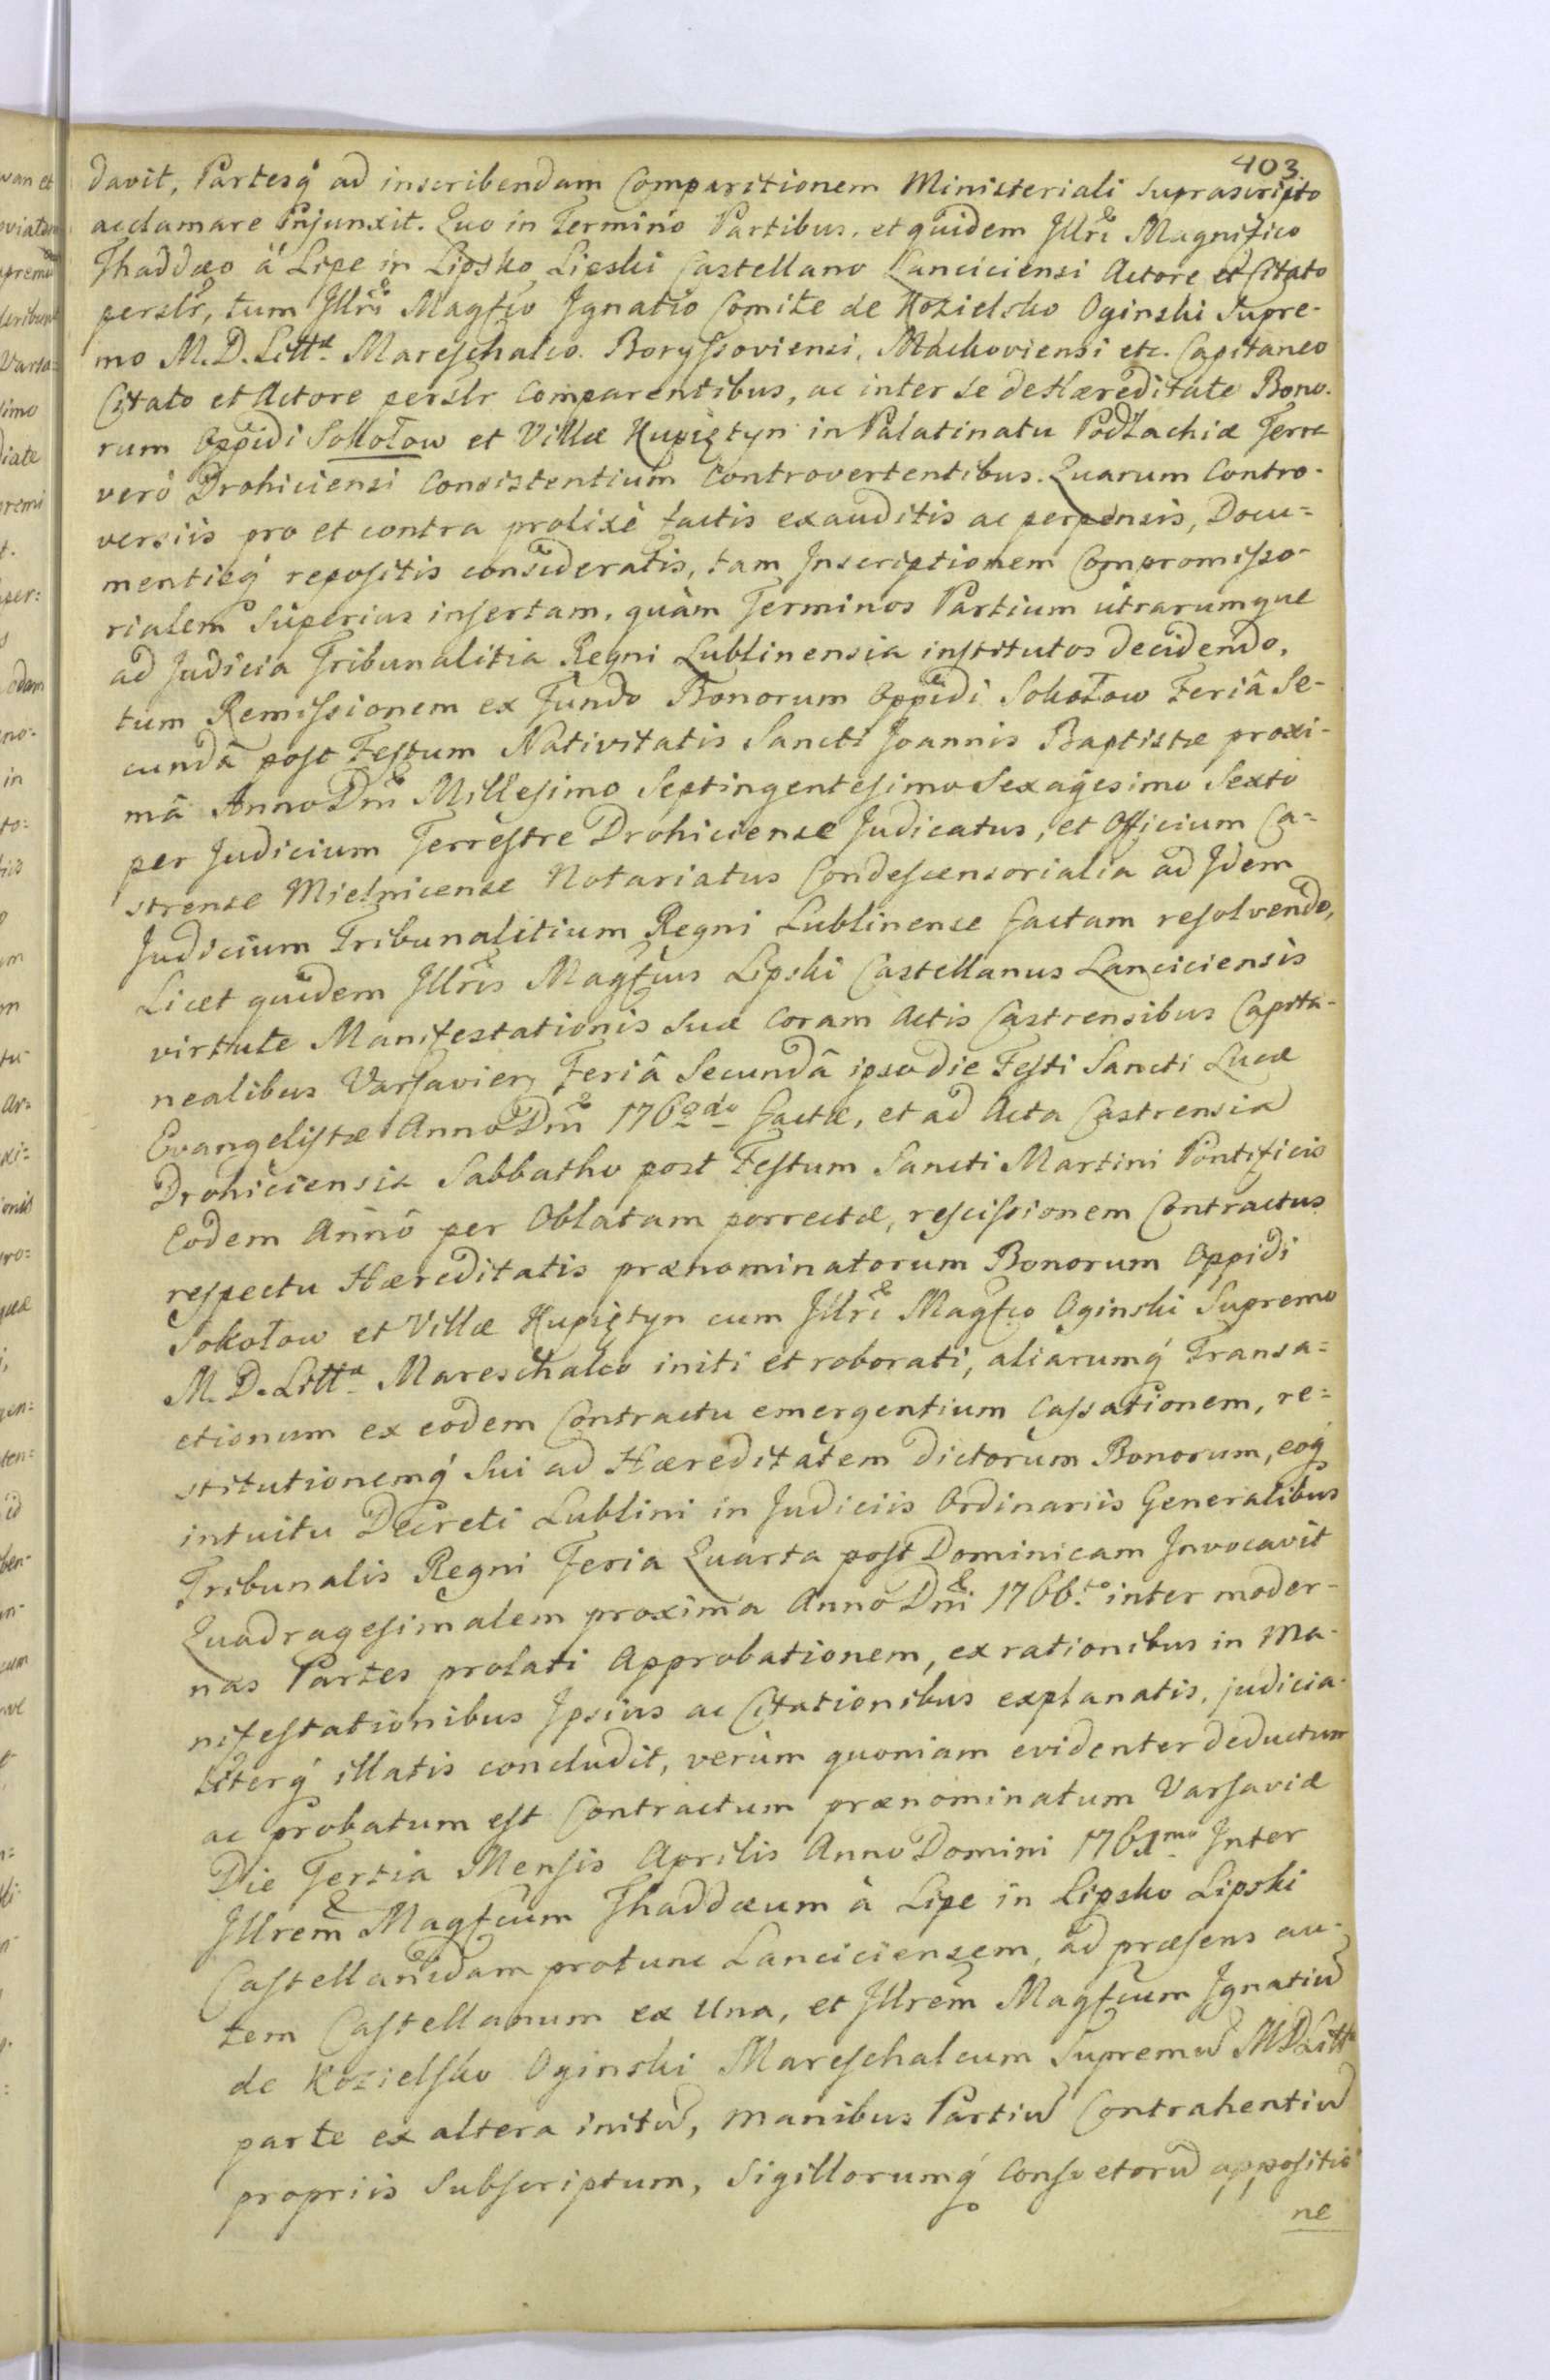 403
davit, Partesq́ ad inscribendam Comparitionem Ministeriali suprascripto
acclamare Injunxit. Quo in Termino Partibus, et quidem Jllri Magnifico
Thaddæo à Lipe in Lipsko Lipski Castellano Lanciciensi Actore et Citato
perslr, tum Jllri Magfco Jgnatio Comite de Kozielsko Oginski Supre-
mo M. D. Littæ Mareschalco. Boryssoviensi, Mackoviensi etc. Capitaneo
Citato et Actore perslr Comparentibus, ac inter se de Hæreditate Bono-
rum Oppidi Sokołow et Villæ Kupiętyn in Palatinatu Podlachiæ Terra
verò Drohiciensi Consistentium Controvertentibus. Quarum Contro-
versiis pro et contra prolixè factis exauditis ac perpensis, Docu=
mentisq́ repositis consideratis, tam Jnscriptionem Compromisso-
rialem Superius insertam, quàm Terminos Partium utrarumque
ad Judicia Tribunalitia Regni Lublinensia institutos decidendo,
tum Remissionem ex Fundo Bonorum Oppidi Sokołow Feriâ Se-
cundâ post Festum Nativitatis Sancti Joannis Baptistæ proxi-
mâ Anno Dni Millesimo Septingentesimo Sexagesimo Sexto
per Judicium Terrestre Drohiciense Judicatus, et Officium Ca=
strense Mielnicense Notariatus Condescensorialia ad Jdem
Judicium Tribunalitium Regni Lublinense factam resolvendo,
Licet quidem Jllris Magfcus Lipski Castellanus Lanciciensis
virtute Manifestationis Suæ Coram Actis Castrensibus Capita-
nealibus Varsavien, Feriâ Secundâ ipso die Festi Sancti Lucæ
Evangelistæ Anno Dni 1762do factæ, et ad Acta Castrensia
Drohiciensia Sabbatho post Festum Sancti Martini Pontificis
Eodem Anno per Oblatam porrectæ, rescissionem Contractus
respectu Hæreditatis prænominatorum Bonorum Oppidi
Sokołow et Villæ Kupiętyn cum Jllri Magfco Oginski Supremo
M. D. Littæ Mareschalco initi et roborati, aliarumq́ Transa=
ctionum ex eodem Contractu emergentium Cassationem, re=
stitutionemq́ Sui ad Hæreditatem dictorum Bonorum, eoq́
intuitu Decreti Lublini in Judiciis Ordinariis Generalibus
Tribunalis Regni Feria Quarta post Dominicam Jnvocavit
Quadragesimalem proxima Anno Dni 1766.to inter moder-
nas Partes prolati Approbationem, ex rationibus in Ma-
nifestationibus Jpsius ac Citationibus explanatis, judicia-
literq́ illatis concludit, verùm quoniam evidenter deductum
ac probatum est Contractum prænominatum Varsaviæ
Die Tertia Mensis Aprilis Anno Domini 1761mo Jnter
Jllrem Magfcum Thaddæum à Lipe in Lipsko Lipski
Castellanidam protunc Lanciciensem, ad præsens au-
tem Castellanum ex Una, et Jllrem Magfcum Jgnatiu
de Kozielsko Oginski Mareschalcum Supremu M D Littæ
parte ex altera initu, manibus Partiu Contrahentiu
propriis Subscriptum, Sigillorumq́ Consvetoru appositio
ne